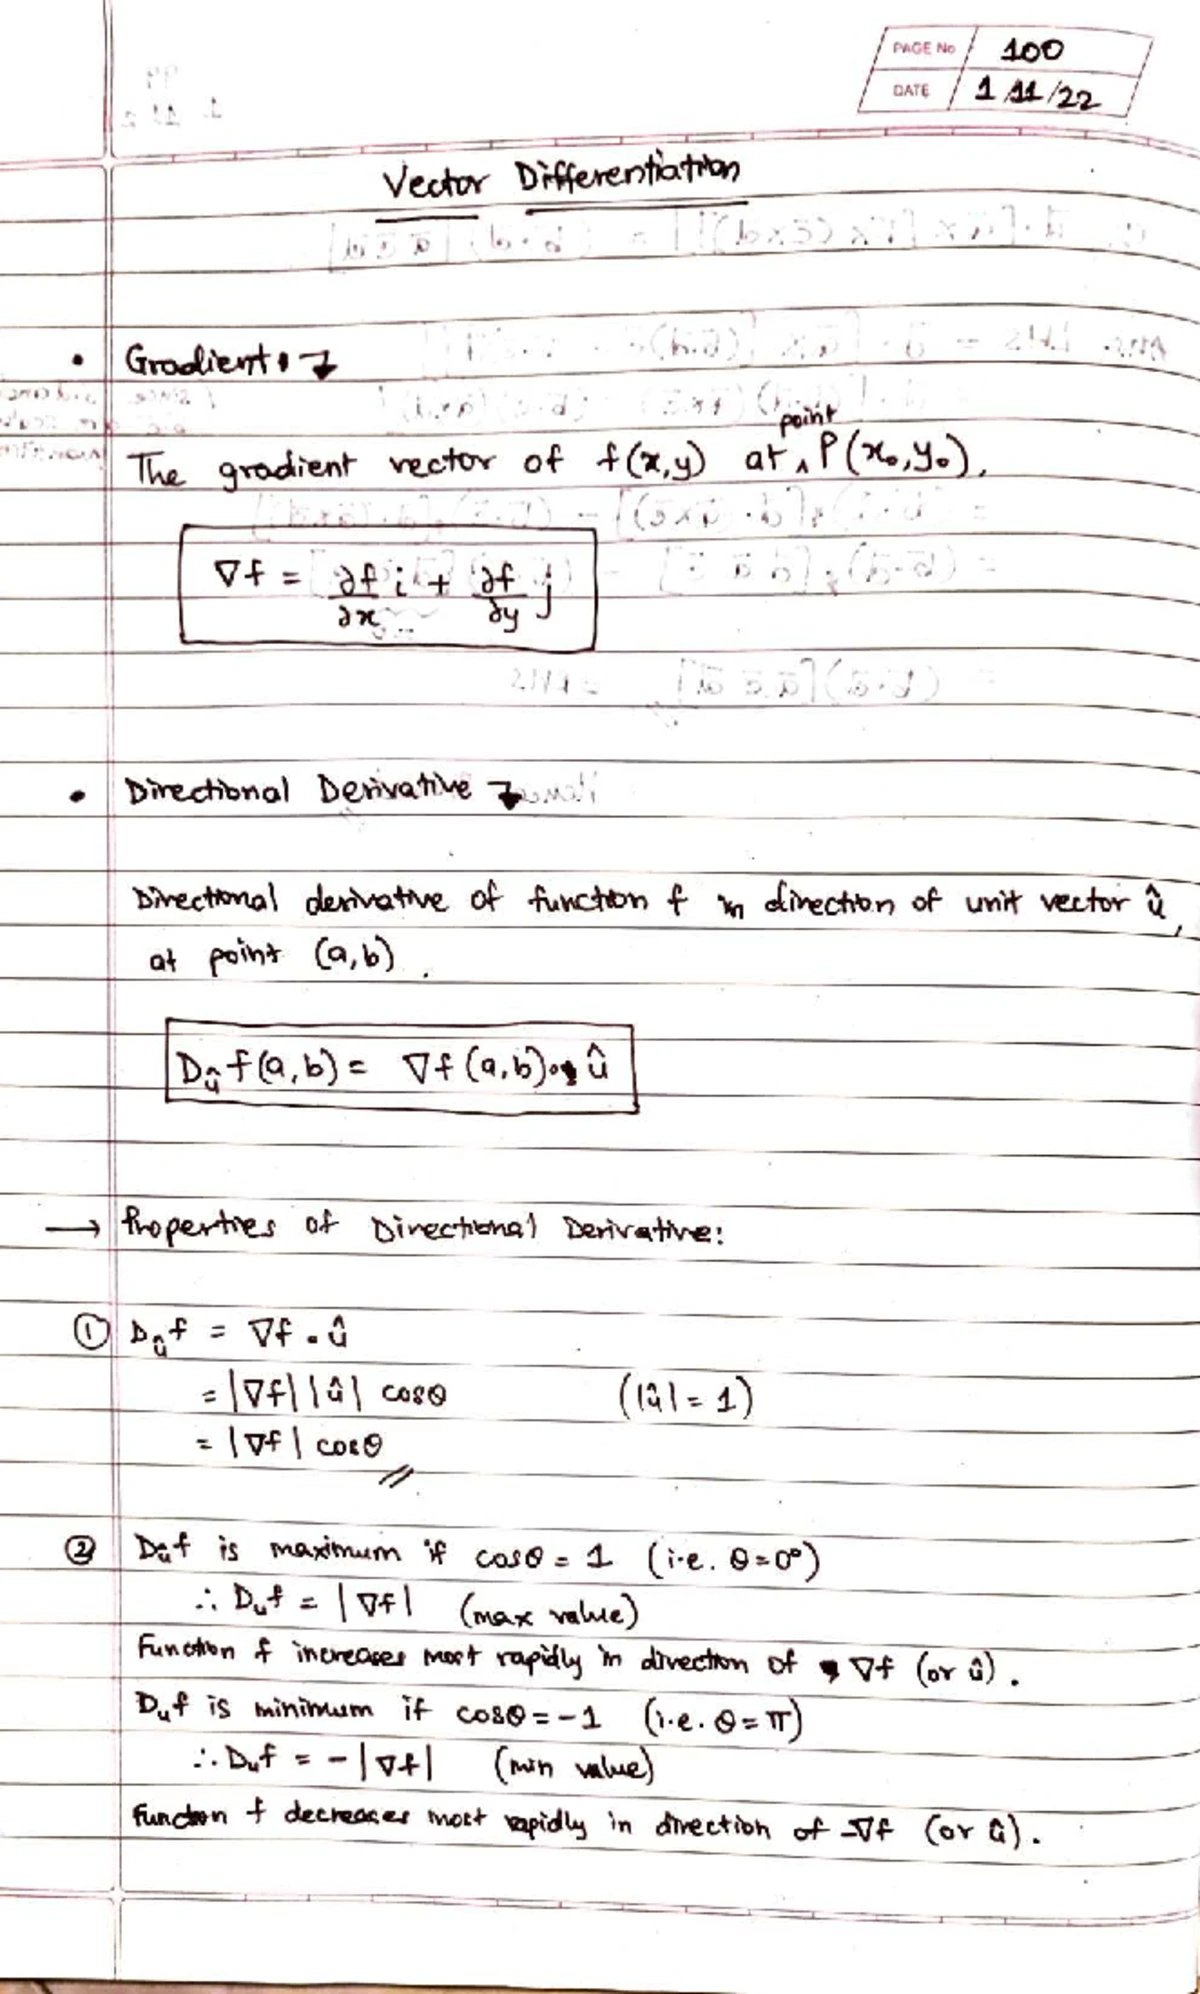 PAGE No 100
DATE 1/11/22
Vector Differentiation
• Gradient :
point
The gradient vector of f(x,y) at ^ P(x₀,y₀),
∇f = ∂f/∂x i + ∂f/∂y j
• Directional Derivative
Directional derivative of function f in direction of unit vector û,
at point (a,b).
Dûf(a,b) = ∇f(a,b)•û
→ Properties of Directional Derivative:
① Dûf = ∇f • û
= |∇f| |û| cosθ (|û| = 1)
= |∇f| cosθ
② Dûf is maximum if cosθ = 1 (i.e. θ=0°)
∴ Duf = |∇f| (max value)
Function f increases most rapidly in direction of ∇f (or û).
Duf is minimum if cosθ = -1 (i.e. θ = π)
∴ Duf = -|∇f| (min value)
Function f decreases most rapidly in direction of -∇f (or û).